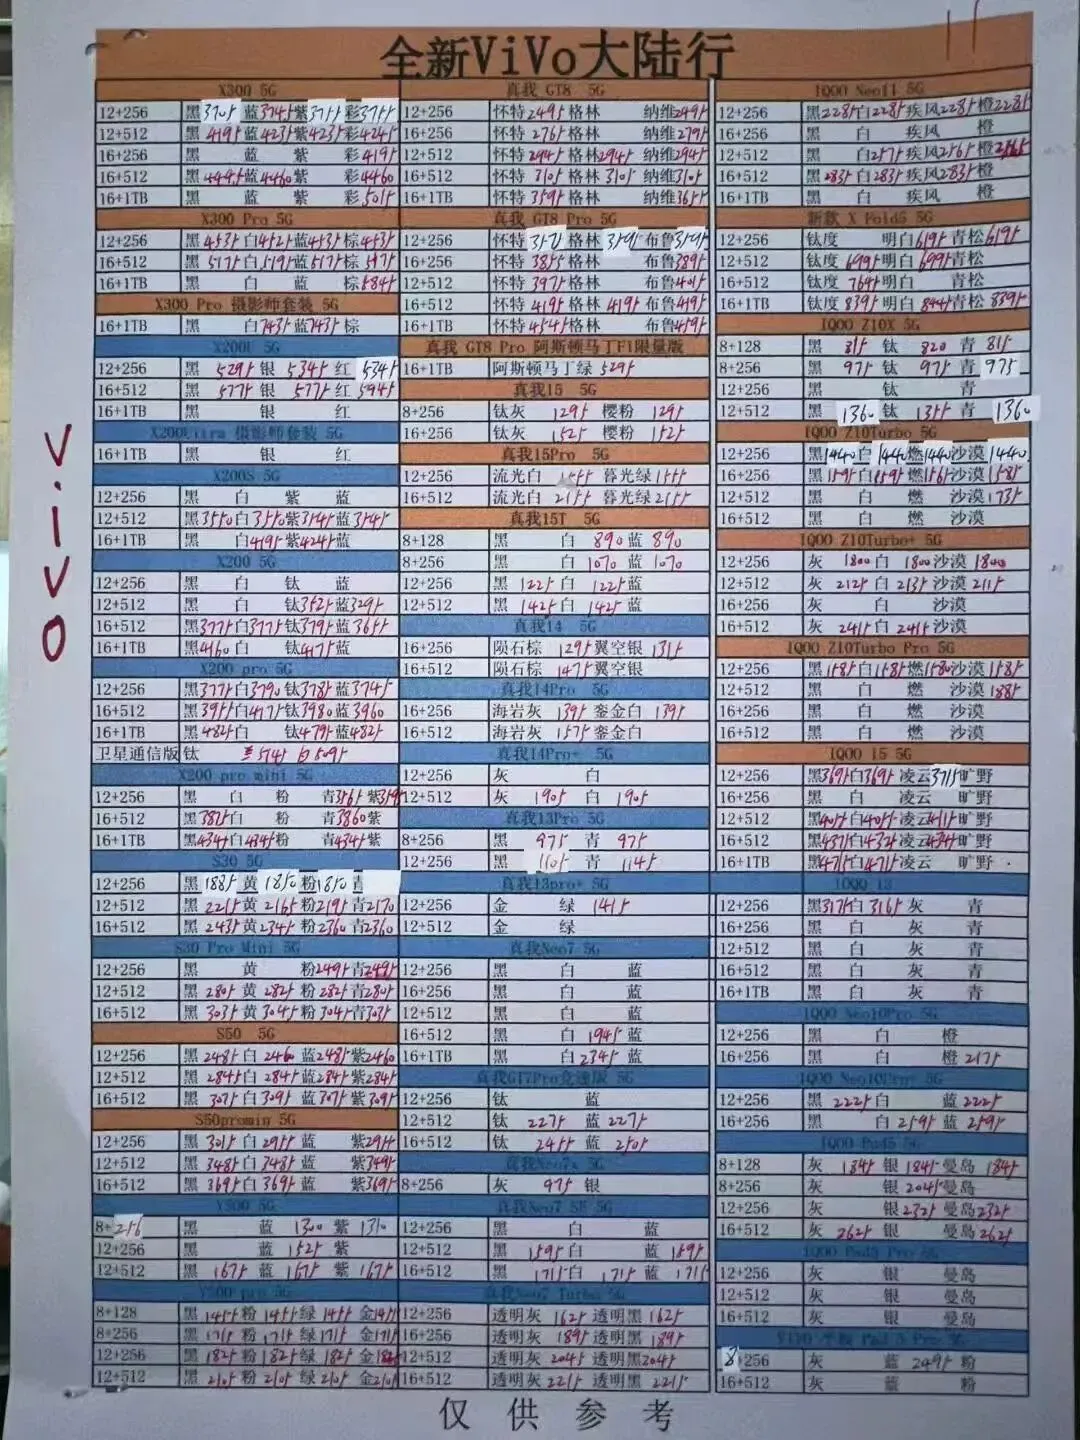 全新ViVo大陆行
ViVO
X300 5G
12+256 黑3705 蓝3745 紫3755 彩3755
12+512 黑4195 蓝4235 紫4235 彩4245
16+256 黑 蓝 紫 彩4195
16+512 黑4445 蓝4460 紫 彩4460
16+1TB 黑 蓝 紫 彩5015
X300 Pro 5G
12+256 黑4535 白4525 蓝4535 棕4535
16+512 黑5175 白5195 蓝5175 棕5175
16+1TB 黑 白 蓝 棕5845
X300 Pro 摄影师套装 5G
16+1TB 黑 白7435 蓝7435 棕
X200U 5G
12+256 黑5295 银5345 红5345
16+512 黑5775 银5775 红5945
16+1TB 黑 银 红
X200Ultra 摄影师套装 5G
16+1TB 黑 银 红
X200S 5G
12+256 黑 白 紫 蓝
12+512 黑3550 白3550 紫3545 蓝3545
16+1TB 黑 白4195 紫4245 蓝
X200 5G
12+256 黑 白 钛 蓝
12+512 黑 白 钛3525 蓝3295
16+512 黑3775 白3775 钛3795 蓝3655
16+1TB 黑4160 白 钛4175 蓝
X200 pro 5G
12+256 黑3775 白3790 钛3785 蓝3745
16+512 黑3955 白4175 钛3980 蓝3960
16+1TB 黑4825 白 钛4795 蓝4825
卫星通信版 钛 5745 白5095
X200 pro mini 5G
12+256 黑 白 粉 青3565 紫3595
16+512 黑3825 白 粉 青3860 紫
16+1TB 黑4345 白4345 粉 青4345 紫
S30 5G
12+256 黑1885 黄1850 粉1850 青
12+512 黑2215 黄2165 粉2195 青2170
16+512 黑2435 黄2345 粉2360 青2360
S30 Pro Mini 5G
12+256 黑 黄 粉2495 青2495
12+512 黑2805 黄2825 粉2825 青2805
16+512 黑3035 黄3045 粉3045 青3035
S50 5G
12+256 黑2485 白2460 蓝2485 紫2460
12+512 黑2845 白2845 蓝2845 紫2845
16+512 黑3075 白3095 蓝3075 紫3095
S50promin 5G
12+256 黑3015 白2955 蓝 紫2945
12+512 黑3485 白3485 蓝 紫3495
16+512 黑3695 白3695 蓝 紫3695
Y500 5G
8+256 黑 蓝1300 紫1310
12+256 黑 蓝1525 紫
12+512 黑1675 蓝1675 紫1675
Y500 pro 5G
8+128 黑1455 粉1455 绿1455 金1455
8+256 黑1715 粉1715 绿1715 金1715
12+256 黑1825 粉1825 绿1825 金1825
12+512 黑2105 粉2105 绿2105 金2105
真我 GT8 5G
12+256 怀特2495 格林 纳维2495
16+256 怀特2765 格林 纳维2795
12+512 怀特2945 格林2945 纳维2945
16+512 怀特3105 格林3105 纳维3105
16+1TB 怀特3595 格林 纳维3655
真我 GT8 Pro 5G
12+256 怀特3575 格林3595 布鲁3595
16+256 怀特3855 格林 布鲁3895
12+512 怀特3975 格林 布鲁4015
16+512 怀特4195 格林4195 布鲁4195
16+1TB 怀特4545 格林 布鲁4595
真我 GT8 Pro 阿斯顿马丁F1限量版
16+1TB 阿斯顿马丁绿 5295
真我15 5G
8+256 钛灰 1295 樱粉 1295
16+256 钛灰 1525 樱粉 1525
真我15Pro 5G
12+256 流光白 暮光绿1555
16+512 流光白 2155 暮光绿2155
真我15T 5G
8+128 黑 白890 蓝890
8+256 黑 白1070 蓝1070
12+256 黑1225 白1225 蓝
12+512 黑1425 白1425 蓝
真我14 5G
16+256 陨石棕 1295 翼空银 1315
16+512 陨石棕 1475 翼空银
真我14Pro 5G
16+256 海岩灰 1395 銮金白 1395
16+512 海岩灰 1575 銮金白
真我14Pro+ 5G
12+256 灰 白
12+512 灰1905 白1905
真我13Pro 5G
8+256 黑975 青975
12+256 黑1105 青1145
真我13pro+ 5G
12+256 金 绿1415
12+512 金 绿
真我Neo7 5G
12+256 黑 白 蓝
16+256 黑 白 蓝
12+512 黑 白 蓝
16+512 黑 白1945 蓝
16+1TB 黑 白2345 蓝
真我GT7Pro竞速版 5G
12+256 钛 蓝
12+512 钛2275 蓝2275
16+512 钛2455 蓝2505
真我Neo7x 5G
8+256 灰975 银
真我Neo7 SE 5G
12+256 黑 白 蓝
12+512 黑1595 白 蓝1595
16+512 黑1715 白1715 蓝1715
真我Neo7 Turbo 5G
12+256 透明灰1625 透明黑1625
16+256 透明灰1895 透明黑1895
12+512 透明灰2045 透明黑2045
16+512 透明灰2215 透明黑2215
IQOO Neo11 5G
12+256 黑2285 白2285 疾风2285 橙2285
16+256 黑 白 疾风 橙
12+512 黑 白2575 疾风2565 橙2565
16+512 黑2835 白2835 疾风2835 橙
16+1TB 黑 白 疾风 橙
新款 X Fold5 5G
12+256 钛度 明白6195 青松6195
12+512 钛度6995 明白6995 青松
16+512 钛度7645 明白 青松
16+1TB 钛度8395 明白8445 青松8395
IQOO Z10X 5G
8+128 黑815 钛820 青815
8+256 黑975 钛975 青975
12+256 黑 钛 青
12+512 黑1360 钛1355 青1360
IQOO Z10Turbo 5G
12+256 黑1440 白1440 燃1440 沙漠1440
16+256 黑1595 白1595 燃1565 沙漠1585
12+512 黑 白 燃 沙漠1735
16+512 黑 白 燃 沙漠
IQOO Z10Turbo+ 5G
12+256 灰1800 白1800 沙漠1800
12+512 灰2125 白2135 沙漠2115
16+256 灰 白 沙漠
16+512 灰2415 白2415 沙漠
IQOO Z10Turbo Pro 5G
12+256 黑1585 白1585 燃1580 沙漠1585
12+512 黑 白 燃 沙漠1885
16+256 黑 白 燃 沙漠
16+512 黑 白 燃 沙漠
IQOO 15 5G
12+256 黑3695 白3695 凌云3715 旷野
16+256 黑 白 凌云 旷野
12+512 黑4075 白4075 凌云4115 旷野
16+512 黑4375 白4325 凌云4345 旷野
16+1TB 黑4715 白4715 凌云 旷野
IQOO 13
12+256 黑3175 白3165 灰 青
16+256 黑 白 灰 青
12+512 黑 白 灰 青
16+512 黑 白 灰 青
16+1TB 黑 白 灰 青
IQOO Neo10Pro 5G
12+256 黑 白 橙
16+256 黑 白 橙2175
IQOO Neo10Pro+ 5G
12+256 黑2225 白 蓝2225
16+256 黑 白2595 蓝2595
IQOO Pad5 5G
8+128 灰1845 银1845 曼岛1845
8+256 灰 银2045 曼岛
12+256 灰 银2325 曼岛2325
16+512 灰2625 银 曼岛2625
IQOO Pad5 Pro 5G
12+256 灰 银 曼岛
12+512 灰 银 曼岛
16+512 灰 银 曼岛
VIVO 平板 Pad 5 Pro 5G
8+256 灰 蓝2495 粉
16+512 灰 蓝 粉
仅供参考